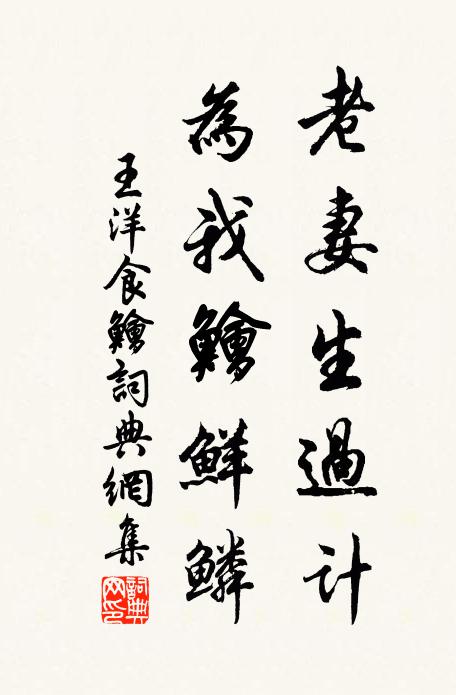 老妻生過計
為我鱠鮮鱗
王洋食鱠詞典網集
詞典网印